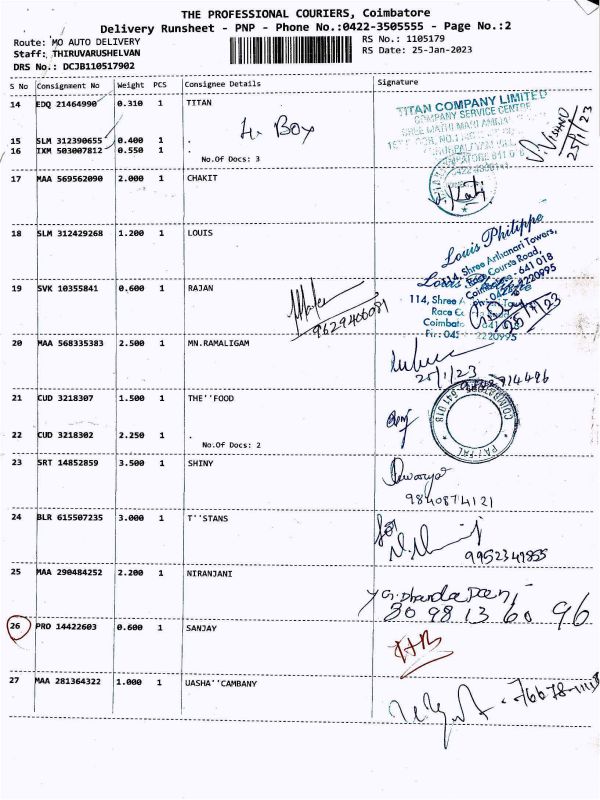 THE PROFESSIONAL COURIERS, Coimbatore
Delivery Runsheet - PNP - Phone No.:0422-3505555 - Page No.:2
Route: MO AUTO DELIVERY RS No.: 1105179
Staff: THIRUVARUSHELVAN RS Date: 25-Jan-2023
DRS No.: DCJB110517902
S No Consignment No Weight PCS Consignee Details Signature
14 EDQ 21464990 0.310 1 TITAN
TITAN COMPANY LIMITED
COMPANY SERVICE CENTRE
25/1/23
15 SLM 312390655 0.400 1 .
16 IXM 503007812 0.550 1 .
No.Of Docs: 3
17 MAA 569562090 2.000 1 CHAKIT
18 SLM 312429268 1.200 1 LOUIS
Louis Philippe
114, Shree Arthanari Towers,
Race Course Road,
Coimbatore - 641 018
19 SVK 10355841 0.600 1 RAJAN
9629406081
20 MAA 568335383 2.500 1 MN.RAMALIGAM
25/1/23
21 CUD 3218307 1.500 1 THE''FOOD
22 CUD 3218302 2.250 1 .
No.Of Docs: 2
23 SRT 14852859 3.500 1 SHINY
9840874121
24 BLR 615507235 3.000 1 T''STANS
25 MAA 290484252 2.200 1 NIRANJANI
80 98 13 60 96
26 PRO 14422603 0.600 1 SANJAY
27 MAA 281364322 1.000 1 UASHA''CAMBANY